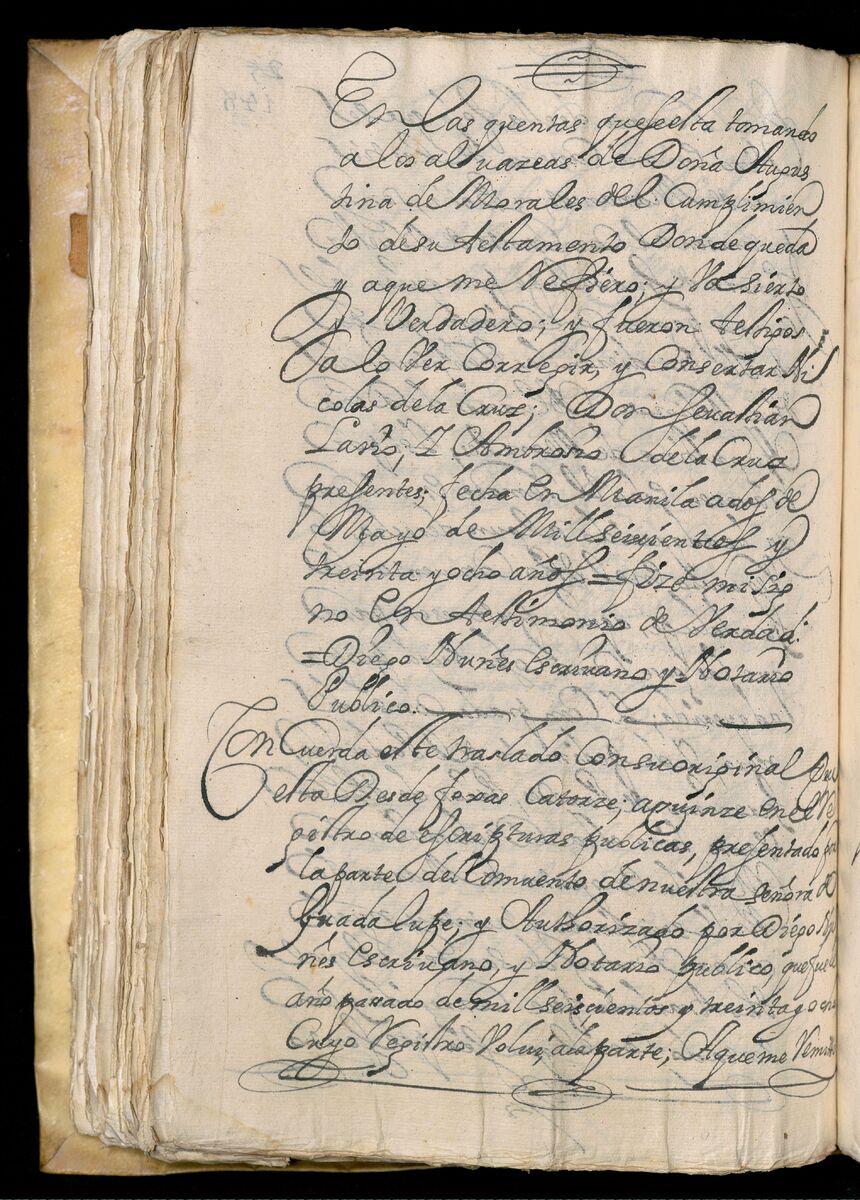 En las quentas que se esta tomando
a los aluazeas de Doña Augus
tina de Morales del Cumplimien
to de su testamento Donde queda
y aque me Refiero; y Va sierto
y Verdadero; y fueron testigos
alo Ver Corregir, y Consertar Ni
colas de la Cruz; Don Seuastian
Lario, Y Ambrosio de la Cruz
presentes; fecha En Manila a dos de
Mayo de Mill seiscientos y
treinta y ocho años = fize mi sig
no En testimonio de Verdad.
= Diego Nuñes Escriuano y Notario
Publico.
Concuerda este traslado Con su original Que
esta Desde foxas Catorze; a quinze en el Re
gistro de escripturas publicas, presentado por
la parte del Comuento de nuestra señora de
Guadalupe; y Authorizado por Diego Nu
ñes Escriuano, y Notario publico, que fue el
año passado de mill seiscientos y treinta y o
Cuyo Registro Volui, ala parte; Aque me Remito